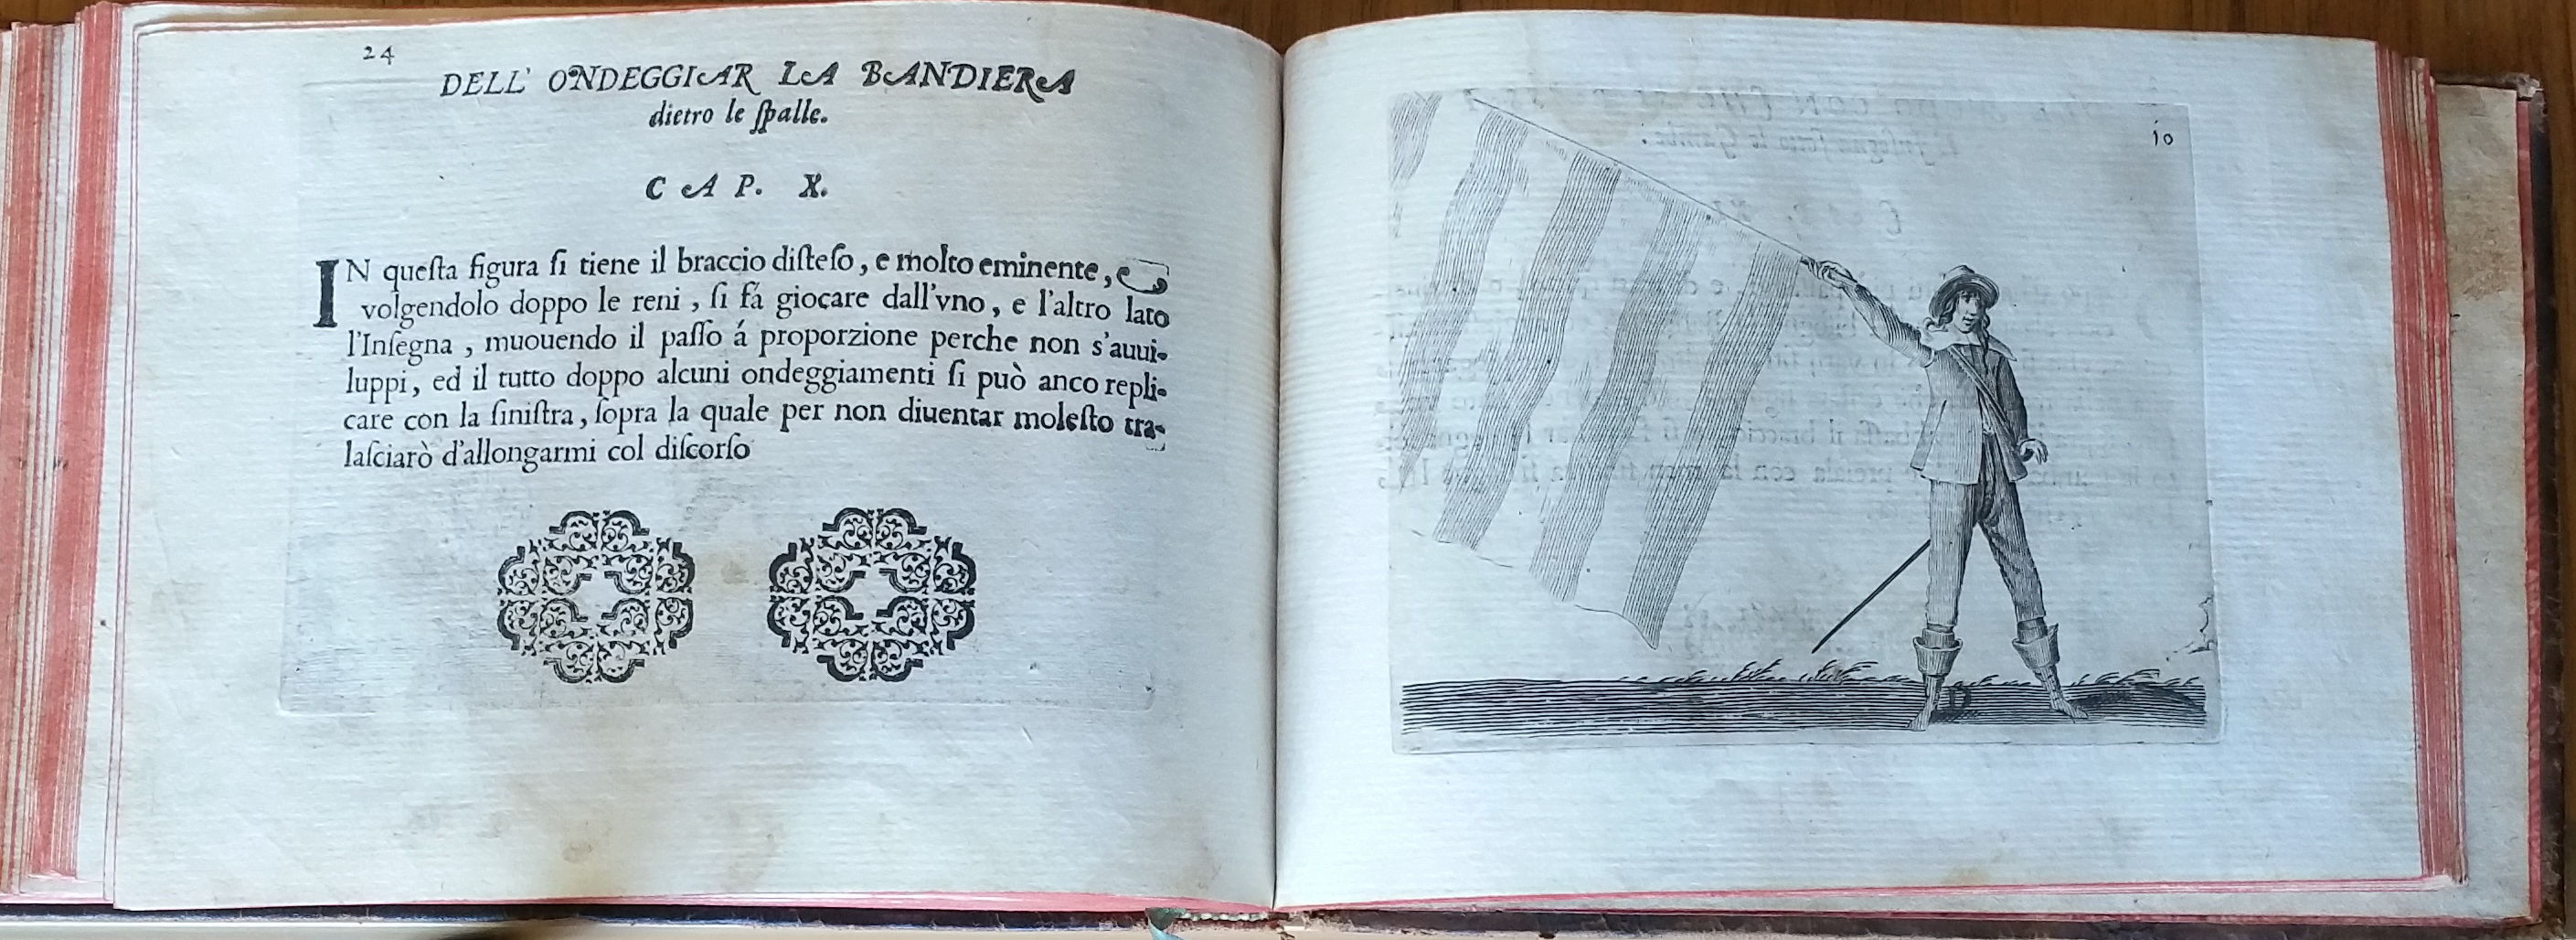 24
DELL' ONDEGGIAR LA BANDIERA
dietro le ſpalle.
CAP. X.
IN queſta figura ſi tiene il braccio diſteſo, e molto eminente, e
volgendolo doppo le reni, ſi fá giocare dall'vno, e l'altro lato
l'Inſegna, muouendo il paſſo á proporzione perche non s'auui-
luppi, ed il tutto doppo alcuni ondeggiamenti ſi può anco repli-
care con la ſiniſtra, ſopra la quale per non diuentar moleſto tra-
laſciarò d'allongarmi col diſcorſo
10